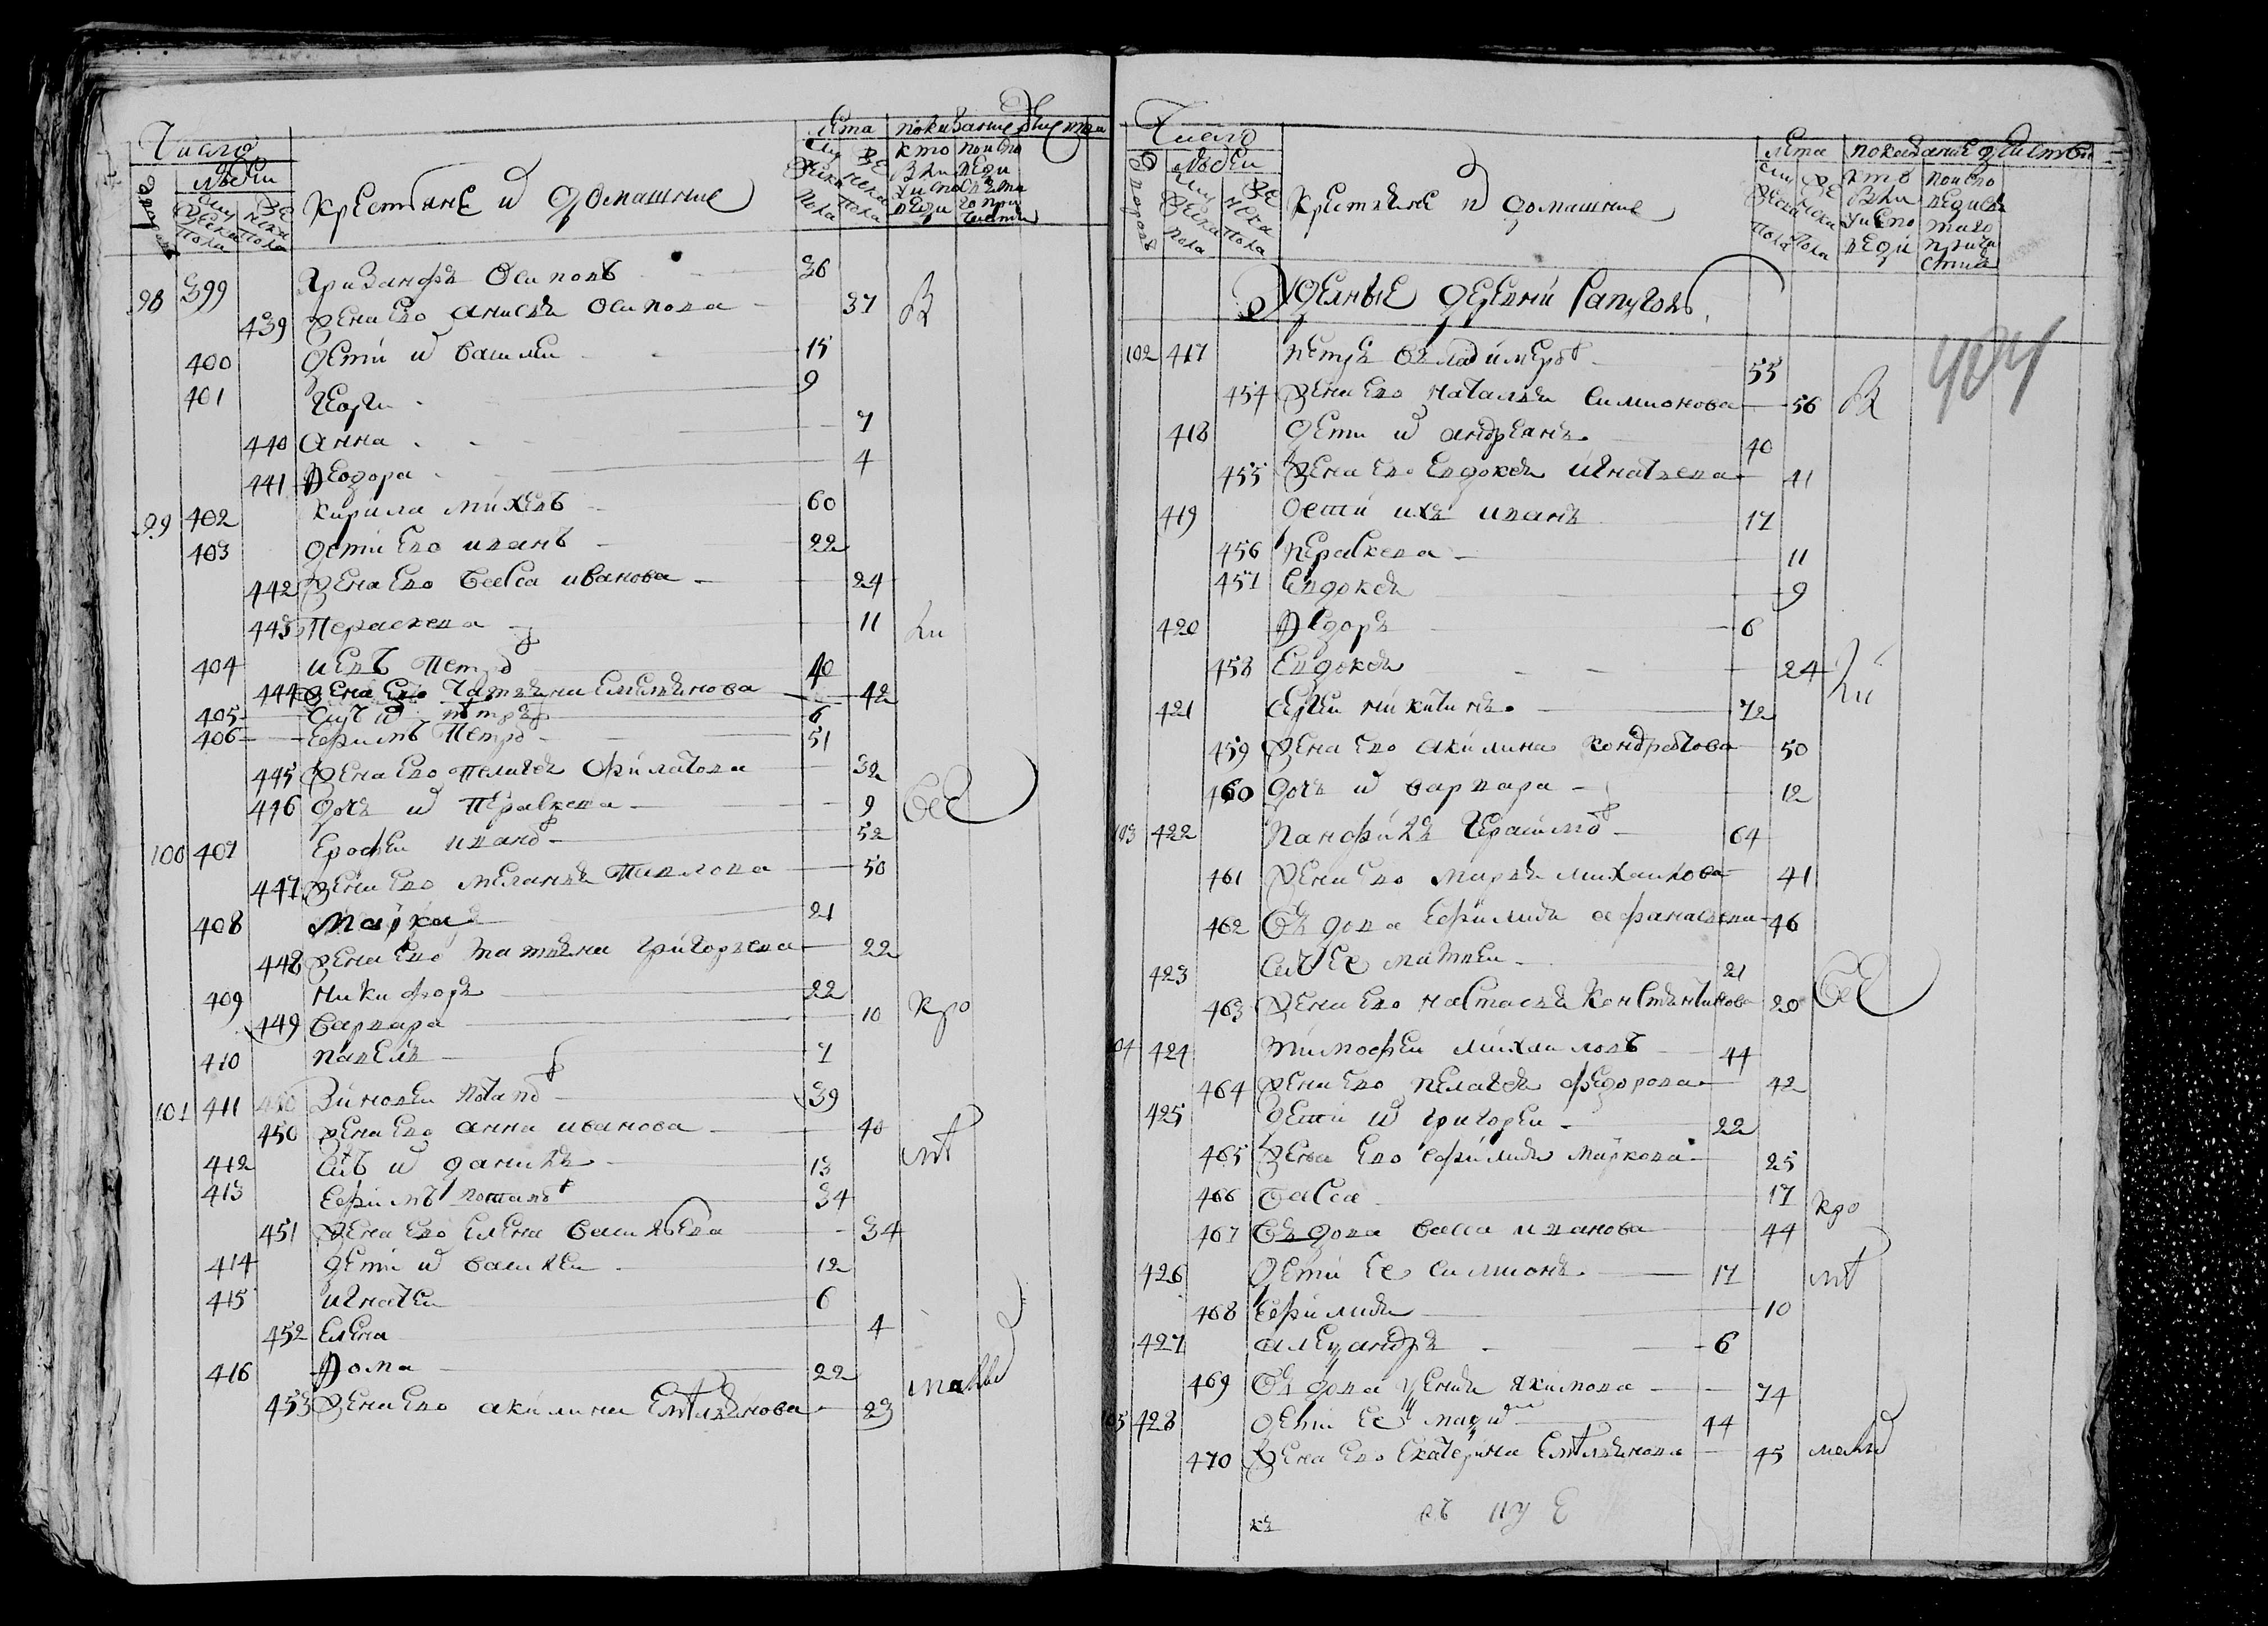 Число
Людеи
Крестьяне и домашние
Лета
показание действа
98 399 Хрисанфъ Осиповъ 36
439 жена его анисья Осипова 37
400 дети их василеи 15
401 Георги 9
440 Анна 7
441 Ѳеодора 4
99 402 Кирила михеевъ 60
403 дети его иванъ 22
442 жена его васса иванова 24
443 Пераскева 11
404 иевъ петровъ 40
444 жена его татьяна емельянова 42
405 сынъ их петръ 6
406 ефимъ Петровъ 51
445 жена его пелагея филатова 32
446 дочь их Пераскева 9
100 407 Ерофеи ивановъ 52
447 жена его меланья павлова 50
408 Марка 21
448 жена его татьяна григорьева 22
409 никифоръ 22
449 варвара 10
410 павелъ 7
101 411 Зиновеи потаповъ 39
450 жена его анна иванова 40
412 сынъ их данила 13
413 Ефимъ потаповъ 34
451 жена его елена васильева 34
414 дети их василеи 12
415 игнатеи 6
452 елена 4
416 Ѳома 22
453 жена его акилина емельянова 23
В
ли
все
кро
мѣ
малы
Число
Людеи
Крестьяне и домашние
Лета
показание действа
Удельные деревни Сапугова
404
102 417 петръ владимеровъ 55
454 жена его наталья симионова 56
418 дети их андреанъ 40
455 жена его евдокея игнатьева 41
419 дети ихъ иванъ 17
456 пераскева 11
457 евдокея 9
420 Ѳедоръ 6
458 евдокея 24
421 сергеи никитинъ 72
459 жена его акилина кондратова 50
460 дочь их варвара 12
103 422 Панфилъ Герасимовъ 64
461 жена его марья михаилова 41
462 вдова ефимия афанасьева 46
423 сынъ ее матвеи 21
463 жена его настасья константинова 20
104 424 тимофеи михаиловъ 44
464 жена его пелагея федорова 42
425 дети их григореи 22
465 жена его ефимия маркова 25
466 васса 17
467 вдова васса иванова 44
426 дети ее симионъ 17
468 ефимия 10
427 алеѯандръ 6
469 вдова ѯения якимова 74
105 428 дети ее маѯимъ 44
470 жена его екатерина емельянова 45
В
ли
все
кро
мѣ
малы